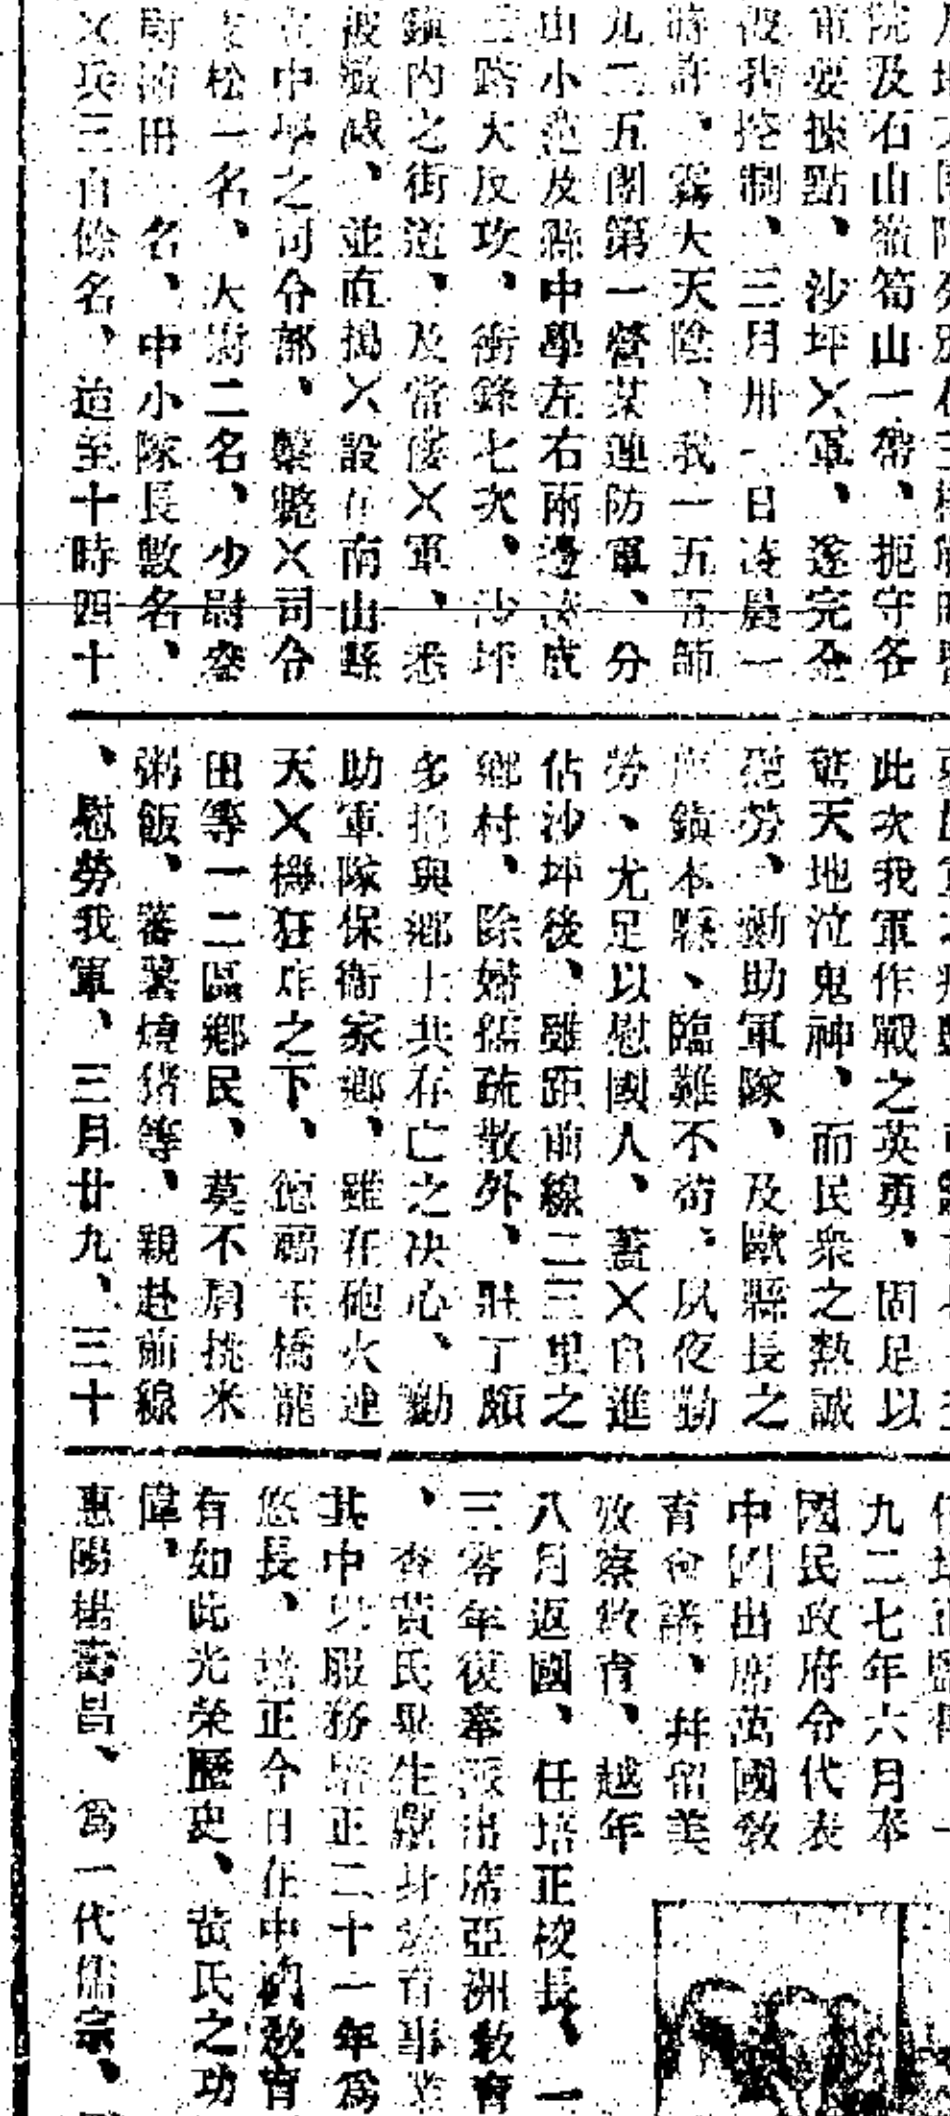 院及石山嶺筍山一帶、扼守各
軍要據點、沙坪㐅軍、遂完全
被我控制、三月卅一日凌晨一
時許、霧大天陰、我一五五師
九二五團第一營某連防軍、分
山小范及縣中學左右兩邊湊成
三路大反攻、衝鋒七次、沙坪
鎮內之街道、及當㐅軍、悉
被殲滅、並直搗㐅設在南山縣
立中學之司令部、擊斃㐅司令
松一名、大尉二名、少尉
尉田名、中小隊長數名、
㐅兵三百餘名、迨至十時四十
此次我軍作戰之英勇、固足以
驚天地泣鬼神、而民衆之熱誠
慰勞、勷助軍隊、及歐縣長之
鎮本縣、臨難不苟、夙夜勤
勞、尤足以慰國人、蓋㐅自進
佔沙坪後、雖距前線二三里之
鄉村、除婦孺疏散外、壯丁頗
多抱與鄉土共存亡之决心、勷
助軍隊保衛家鄉、雖在砲火連
天㐅機狂炸之下、玉橋龍
田等一二區鄉民、莫不肩挑米
粥飯、蕃薯燒猪等、親赴前線
、慰勞我軍、三月廿九、三十
九二七年六月奉
國民政府令代表
中國出席萬國敎
育會議、并留美
攷察敎育、越年
八月返國、任培正校長、一
三零年復奉派出席亞洲敎育
、查黃氏畢生獻身敎育事業
其中以服務培正二十一年爲
悠長、培正今日在中國敎育
有如此光榮歷史、黃氏之功
偉、
惠陽楊壽昌、爲一代儒宗、